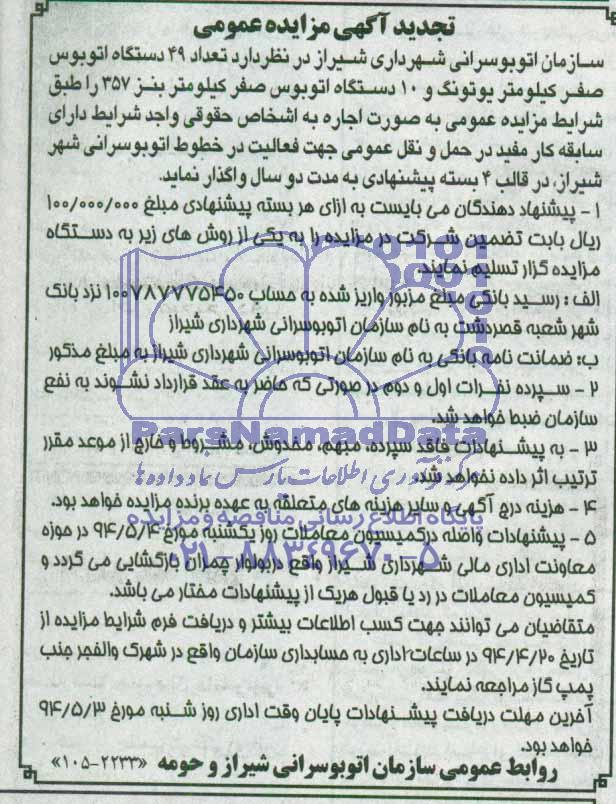 تجدید آگهی مزایده عمومی
سازمان اتوبوسرانی شهرداری شیراز در نظر دارد تعداد ۴۹ دستگاه اتوبوس
صفر کیلومتر یوتونگ و ۱۰ دستگاه اتوبوس صفر کیلومتر بنز ۳۵۷ را طبق
شرایط مزایده عمومی به صورت اجاره به اشخاص حقوقی واجد شرایط دارای
سابقه کار مفید در حمل و نقل عمومی جهت فعالیت در خطوط اتوبوسرانی شهر
شیراز، در قالب ۴ بسته پیشنهادی به مدت دو سال واگذار نماید.
۱ - پیشنهاد دهندگان می بایست به ازای هر بسته پیشنهادی مبلغ ۱۰۰/۰۰۰/۰۰۰
ریال بابت تضمین شرکت در مزایده را به یکی از روش های زیر به دستگاه
مزایده گزار تسلیم نمایند.
الف : رسید بانکی مبلغ مزبور واریز شده به حساب ۱۰۰۷۸۷۷۷۵۴۵۰ نزد بانک
شهر شعبه قصردشت به نام سازمان اتوبوسرانی شهرداری شیراز
ب: ضمانت نامه بانکی به نام سازمان اتوبوسرانی شهرداری شیراز به مبلغ مذکور
۲ - سپرده نفرات اول و دوم در صورتی که حاضر به عقد قرارداد نشوند به نفع
سازمان ضبط خواهد شد.
ParsNamadData
۳ - به پیشنهادات فاقد سپرده، مبهم، مخدوش، مشروط و خارج از موعد مقرر
ترتیب اثر داده نخواهد شد.
مرکز فرآوری اطلاعات پارس نماد داده ها
۴ - هزینه درج آگهی و سایر هزینه های متعلقه به عهده برنده مزایده خواهد بود.
پایگاه اطلاع رسانی مناقصه و مزایده
۵ - پیشنهادات واصله در کمیسیون معاملات روز یکشنبه مورخ ۹۴/۵/۴ در حوزه
۰۲۱-۸۸۳۴۹۶۷۰-۵
معاونت اداری مالی شهرداری شیراز واقع در بولوار چمران بازگشایی می گردد و
کمیسیون معاملات در رد یا قبول هریک از پیشنهادات مختار می باشد.
متقاضیان می توانند جهت کسب اطلاعات بیشتر و دریافت فرم شرایط مزایده از
تاریخ ۹۴/۴/۲۰ در ساعات اداری به حسابداری سازمان واقع در شهرک والفجر جنب
پمپ گاز مراجعه نمایند.
آخرین مهلت دریافت پیشنهادات پایان وقت اداری روز شنبه مورخ ۹۴/۵/۳
خواهد بود.
روابط عمومی سازمان اتوبوسرانی شیراز و حومه «۲۲۳۳-۱۰۵»